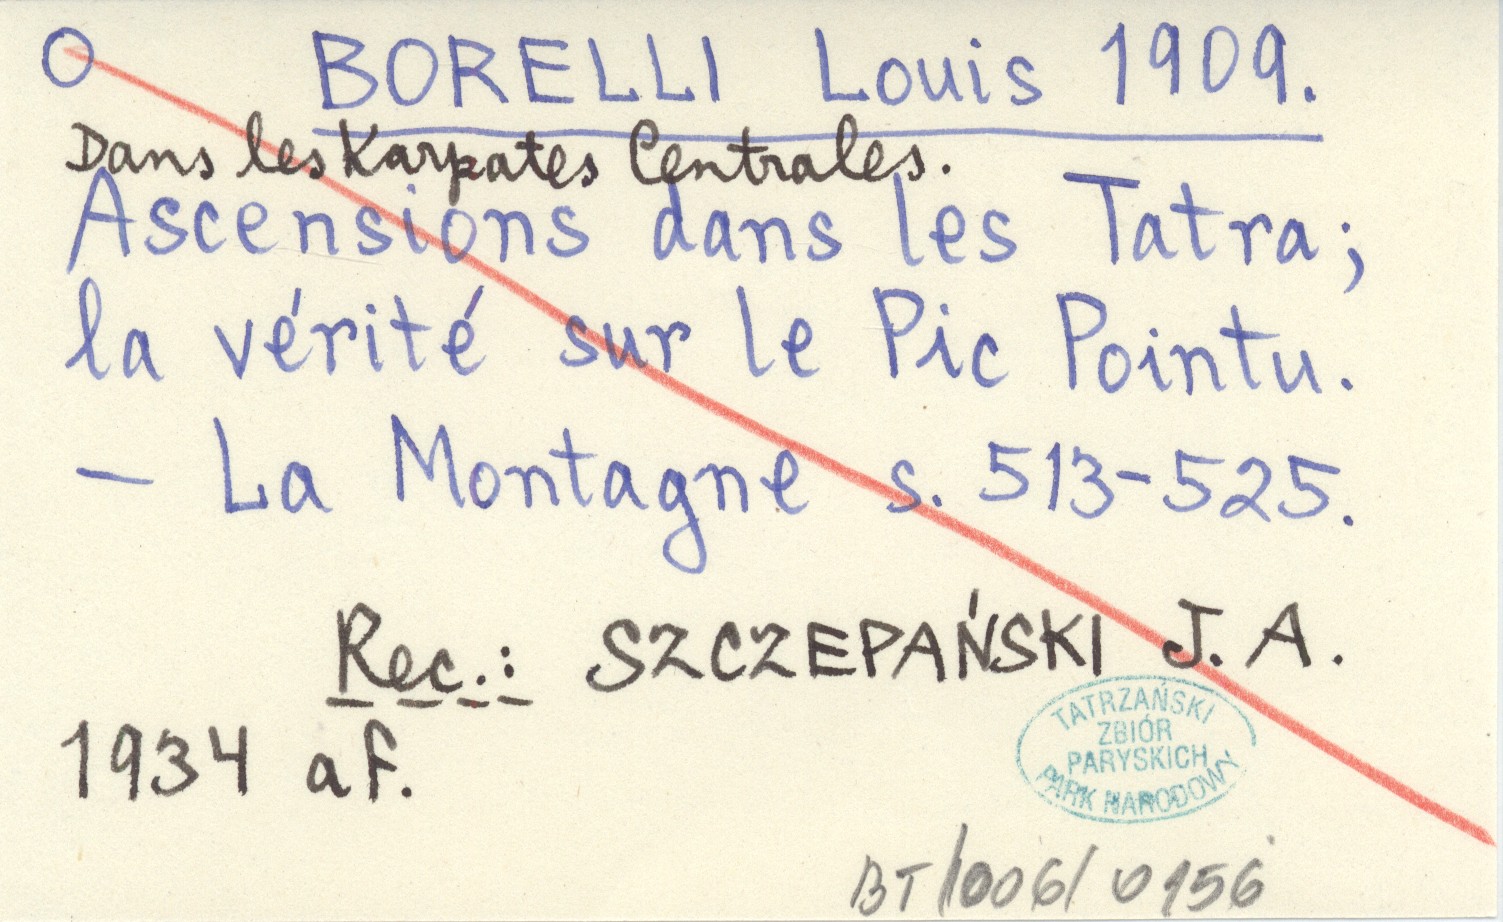 O BORELLI Louis 1909.
Dans les Karpates Centrales.
Ascensions dans les Tatra;
la vérité sur le Pic Pointu.
— La Montagne s. 513-525.
Rec.: SZCZEPAŃSKI J. A.
1934 af.
TATRZAŃSKI
ZBIÓR
PARYSKICH
PARK NARODOWY
BT/006/0156